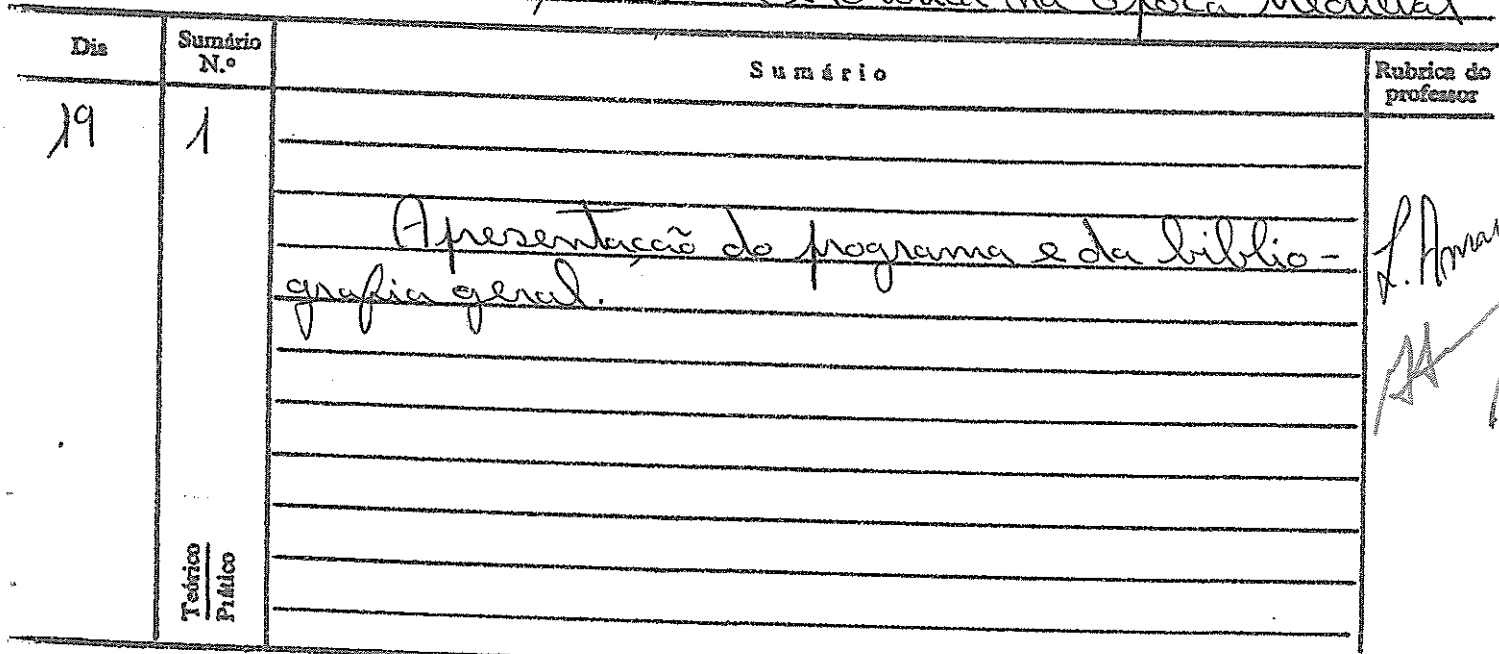 na Época Medieval
Dia
Sumário N.º
Sumário
Rubrica do professor
19
1
Apresentação do programa e da biblio-
grafia geral.
L. Amar
Teórico
Prático